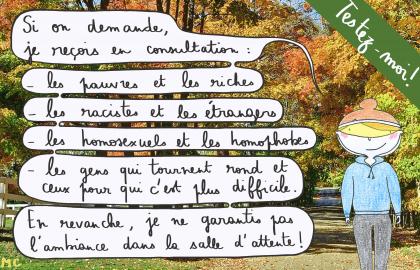 Si on demande,
je reçois en consultation :
- les pauvres et les riches
- les racistes et les étrangers
- les homosexuels et les homophobes
- les gens qui tournent rond et
ceux pour qui c'est plus difficile.
En revanche, je ne garantis pas
l'ambiance dans la salle d'attente !
Testez-moi !
MC